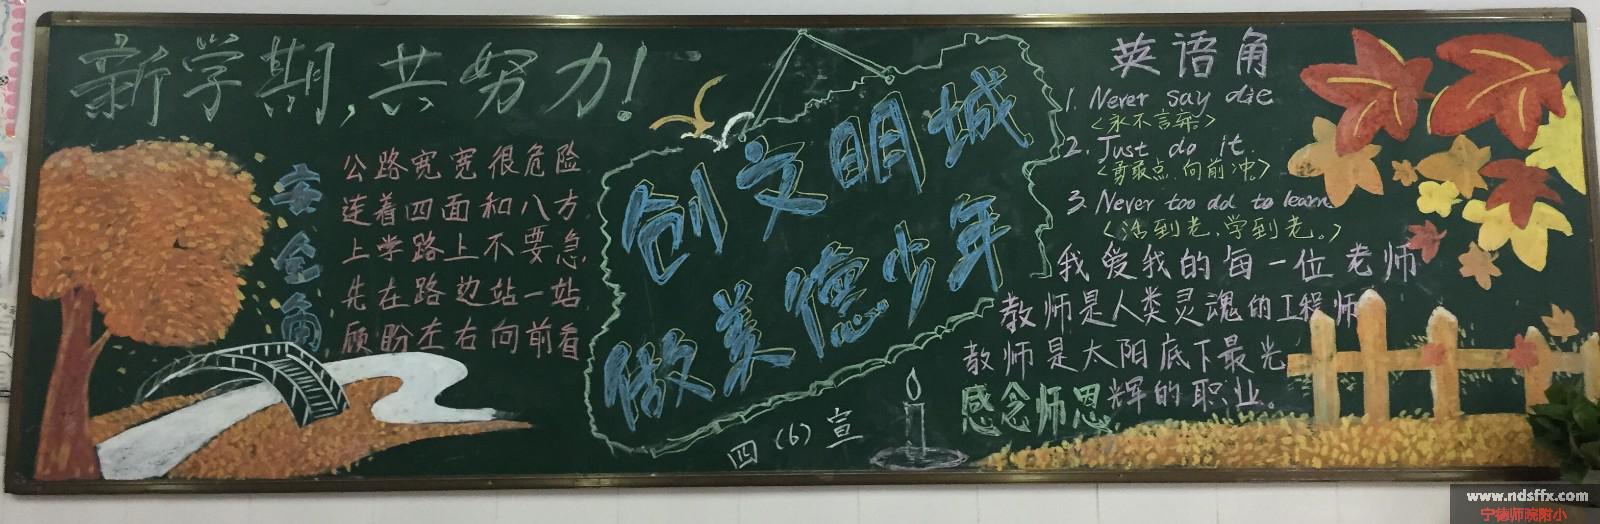 新学期,共努力!
安全角
公路宽宽很危险
连着四面和八方
上学路上不要急
先在路边站一站
顾盼左右向前看
创文明城
做美德少年
四(6)宣
英语角
1. Never say die
<永不言弃>
2. Just do it.
<勇敢点,向前冲>
3. Never too old to learn
<活到老,学到老。>
我爱我的每一位老师
教师是人类灵魂的工程师
教师是太阳底下最光
辉的职业。
感念师恩
www.ndsffx.com
宁德师院附小